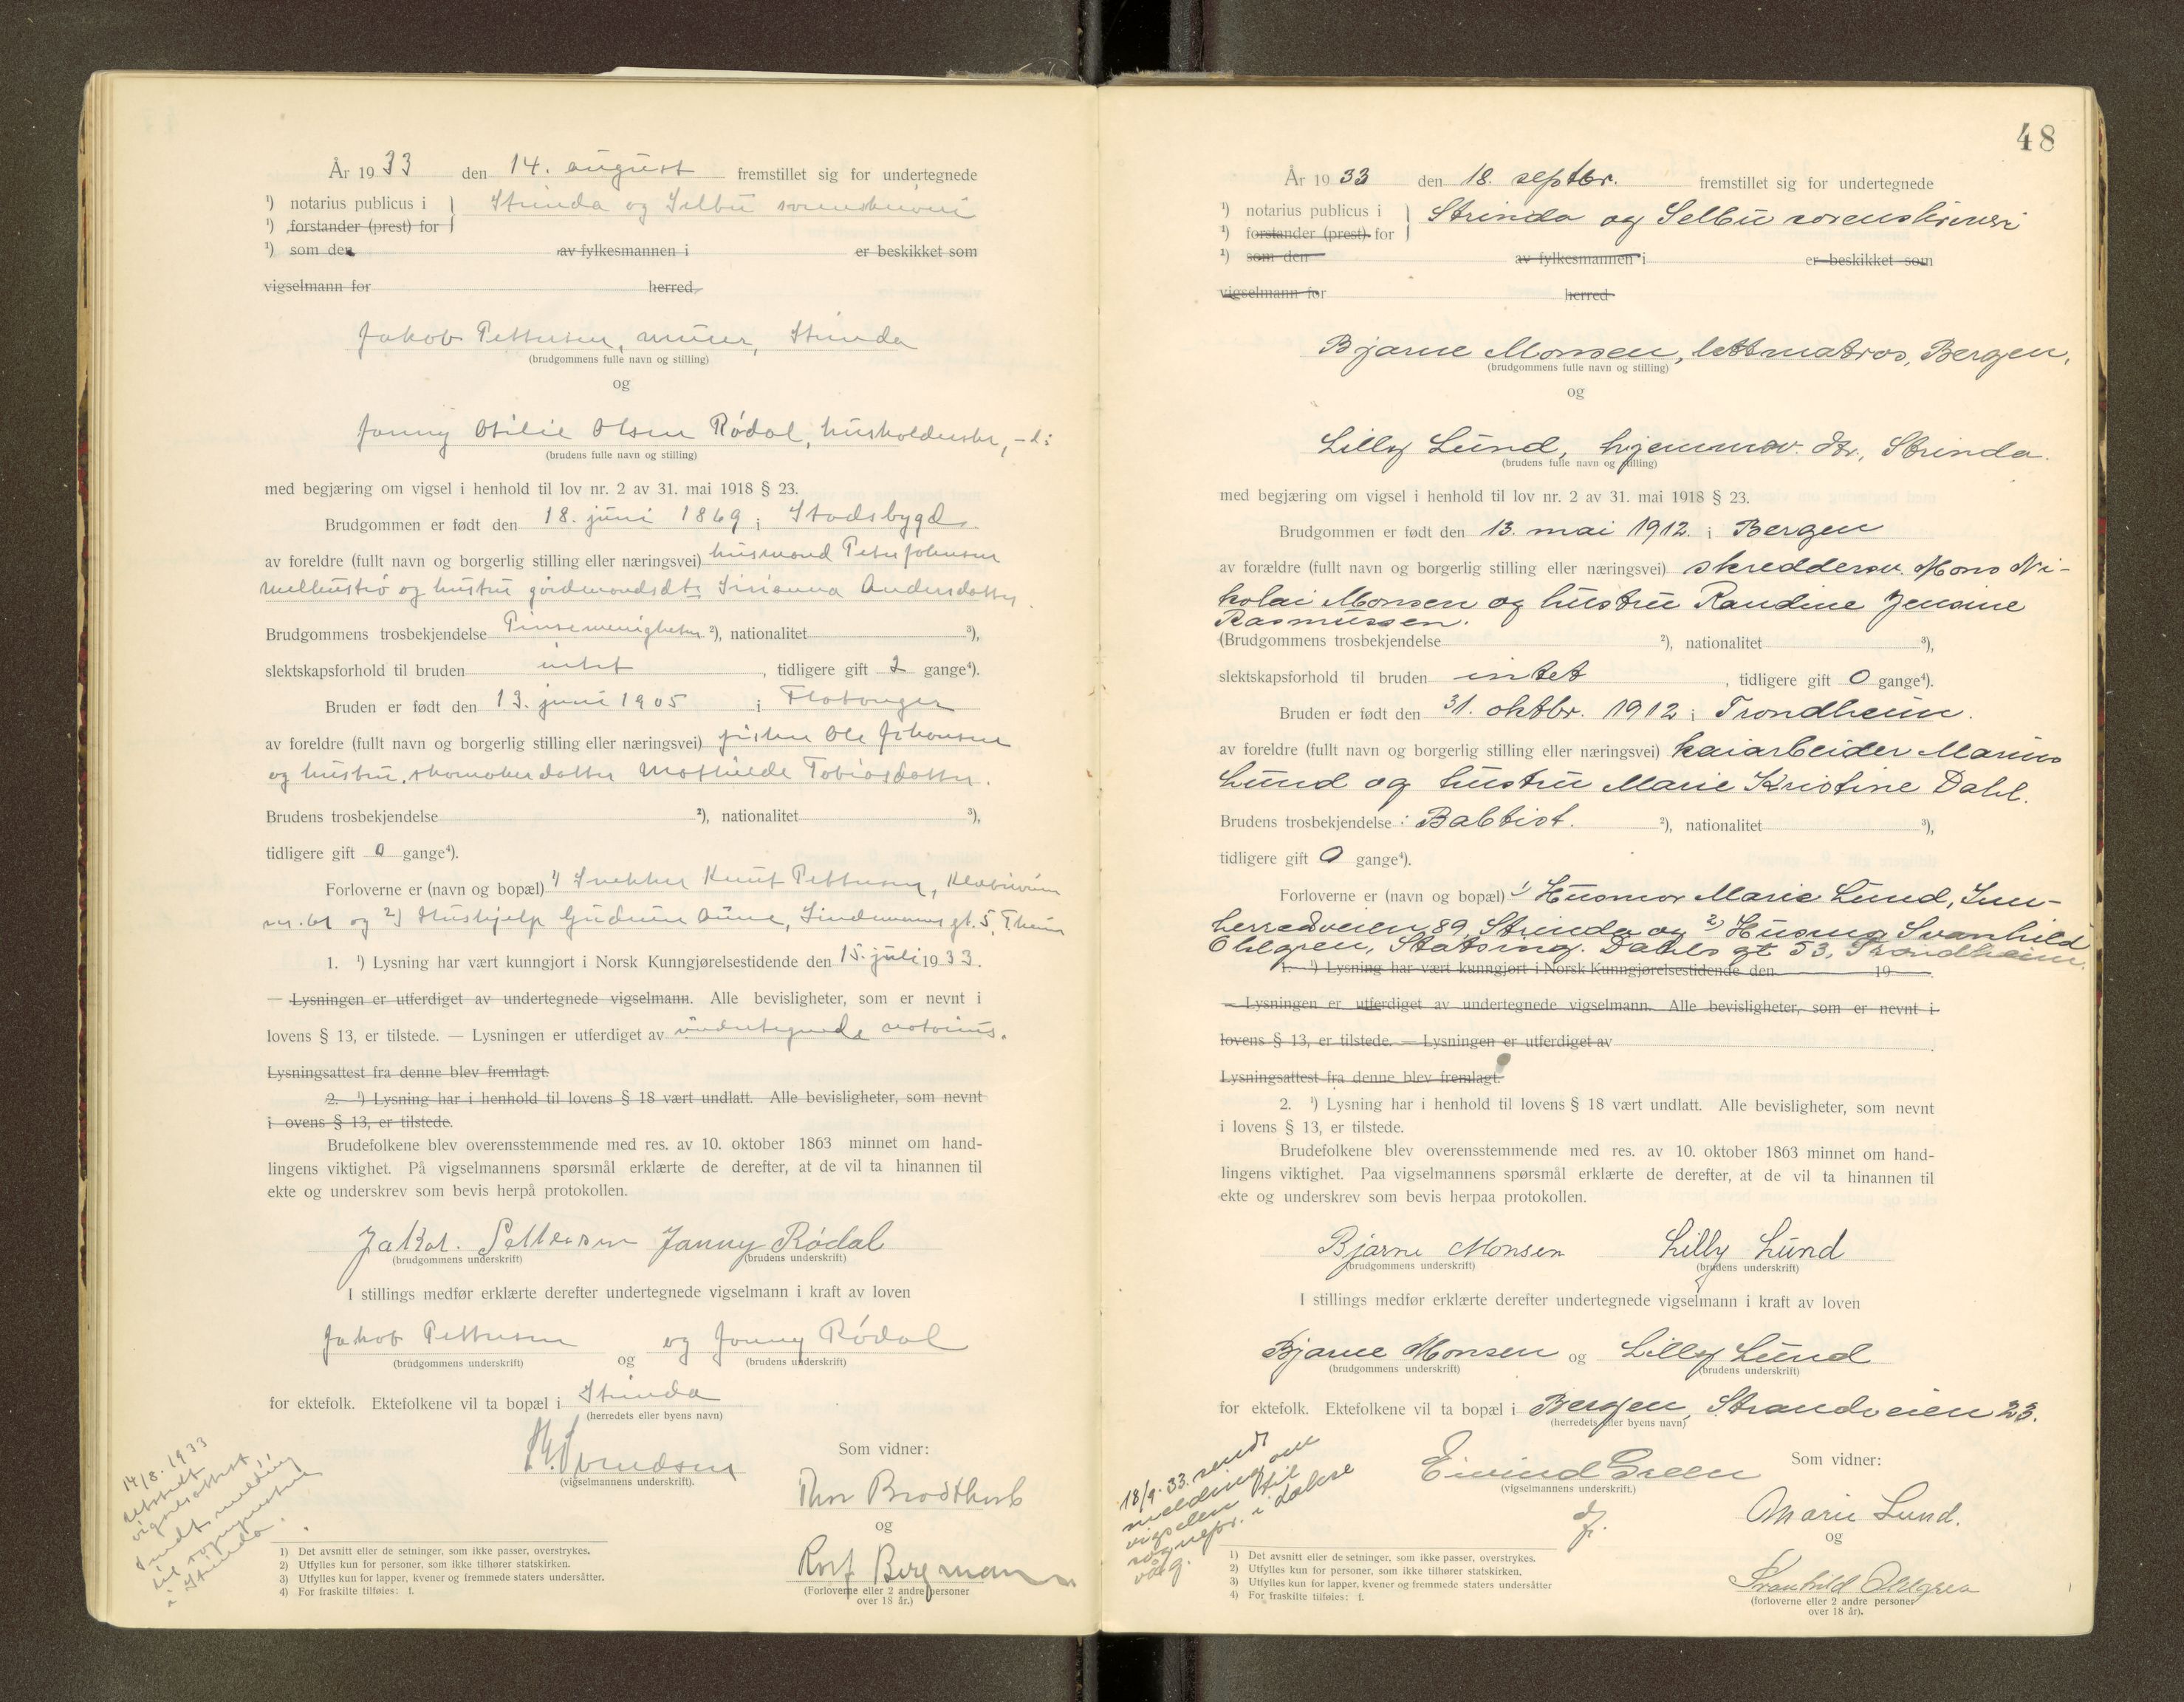 År 1933 den 14. august fremstillet sig for undertegnede
¹) notarius publicus i Strinda og Selbu sorenskriveri
¹) forstander (prest) for
¹) som den av fylkesmannen i er beskikket som
vigselmann for herred
Jakob Pettersen, murer, Strinda
(brudgommens fulle navn og stilling)
og
Janny Otilie Olsen Rødal, husholderske,
(brudens fulle navn og stilling)
med begjæring om vigsel i henhold til lov nr. 2 av 31. mai 1918 § 23.
Brudgommen er født den 18. juni 1869 i Stadsbygd
av foreldre (fullt navn og borgerlig stilling eller næringsvei) husmand Peter Johnsen
og hustru Andersdatter
Brudgommens trosbekjendelse Pinsemenigheten ²), nationalitet ³),
slektskapsforhold til bruden intet , tidligere gift 2 gange⁴).
Bruden er født den 13. juni 1905 i
av foreldre (fullt navn og borgerlig stilling eller næringsvei) fisker Ole Johansen
og hustru, skomakerdatter Mathilde Tobiasdatter.
Brudens trosbekjendelse ²), nationalitet ³),
tidligere gift 0 gange⁴).
Forloverne er (navn og bopæl) 1) Snekker Knut Pettersen,
og 2) Hushjelp Gudrun Aune, gt. 5, Theim
1. ¹) Lysning har vært kunngjort i Norsk Kunngjørelsestidende den 15. juli 1933.
— Lysningen er utferdiget av undertegnede vigselmann. Alle bevisligheter, som er nevnt i
lovens § 13, er tilstede. — Lysningen er utferdiget av undertegnede notarius.
Lysningsattest fra denne blev fremlagt.
2. ¹) Lysning har i henhold til lovens § 18 vært undlatt. Alle bevisligheter, som nevnt
i ovens § 13, er tilstede.
Brudefolkene blev overensstemmende med res. av 10. oktober 1863 minnet om hand-
lingens viktighet. På vigselmannens spørsmål erklærte de derefter, at de vil ta hinannen til
ekte og underskrev som bevis herpå protokollen.
Jakob. Pettersen Janny Rødal
(brudgommens underskrift) (brudens underskrift)
I stillings medfør erklærte derefter undertegnede vigselmann i kraft av loven
Jakob Pettersen og og Janny Rødal
(brudgommens underskrift) (brudens underskrift)
for ektefolk. Ektefolkene vil ta bopæl i Strinda
(herredets eller byens navn)
Som vidner:
(vigselmannens underskrift).
Thor
og
Rolf Bergmann
(Forloverne eller 2 andre personer
over 18 år.)
14/8. 1933
utstedt
vigselsattest.
Sendt melding
til sognepresten
i Strinda.
1) Det avsnitt eller de setninger, som ikke passer, overstrykes.
2) Utfylles kun for personer, som ikke tilhører statskirken.
3) Utfylles kun for lapper, kvener og fremmede staters undersåtter.
4) For fraskilte tilføies: f.
48
År 1933 den 18. septbr. fremstillet sig for undertegnede
¹) notarius publicus i Strinda og Selbu sorenskriveri
¹) forstander (prest) for
¹) som den av fylkesmannen i er beskikket som
vigselmann for herred
Bjarne Monsen, lettmatros, Bergen.
(brudgommens fulle navn og stilling)
og
Lilly Lund, hjemmev. dtr., Strinda.
(brudens fulle navn og stilling)
med begjæring om vigsel i henhold til lov nr. 2 av 31. mai 1918 § 23.
Brudgommen er født den 13. mai 1912. i Bergen
av forældre (fullt navn og borgerlig stilling eller næringsvei) skreddersv. Mons Ni-
kolai Monsen og hustru Randine Jensine
Rasmussen.
(Brudgommens trosbekjendelse ²), nationalitet ³),
slektskapsforhold til bruden intet , tidligere gift 0 gange⁴).
Bruden er født den 31. oktbr. 1912 i Trondheim.
av foreldre (fullt navn og borgerlig stilling eller næringsvei) kaiarbeider Marius
Lund og hustru Marie Kristine Dahl.
Brudens trosbekjendelse : Babtist. ²), nationalitet ³),
tidligere gift 0 gange⁴).
Forloverne er (navn og bopæl) 1) Husmor Marie Lund, Inn-
herredsveien 89, Strinda og 2) Husmor Svanhild
Ohlgren, Statsing. Dahls gt 53, Trondheim.
1. ¹) Lysning har vært kunngjort i Norsk Kunngjørelsestidende den 19 .
— Lysningen er utferdiget av undertegnede vigselmann. Alle bevisligheter, som er nevnt i
lovens § 13, er tilstede. — Lysningen er utferdiget av .
Lysningsattest fra denne blev fremlagt.
2. ¹) Lysning har i henhold til lovens § 18 vært undlatt. Alle bevisligheter, som nevnt
i lovens § 13, er tilstede.
Brudefolkene blev overensstemmende med res. av 10. oktober 1863 minnet om hand-
lingens viktighet. Paa vigselmannens spørsmål erklærte de derefter, at de vil ta hinannen til
ekte og underskrev som bevis herpaa protokollen.
Bjarne Monsen Lilly Lund
(brudgommens underskrift) (brudens underskrift)
I stillings medfør erklærte derefter undertegnede vigselmann i kraft av loven
Bjarne Monsen og Lilly Lund
(brudgommens underskrift) (brudens underskrift)
for ektefolk. Ektefolkene vil ta bopæl i Bergen, Strandveien 23.
(herredets eller byens navn)
Eivind Green Som vidner:
(vigselmannens underskrift.)
Marie Lund.
og
Svanhild Ohlgren
(forloverne eller 2 andre personer
over 18 år).
18/9. 33. sendt
melding om
vigselen til
sognepr. i
1) Det avsnitt eller de setninger, som ikke passer, overstrykes.
2) Utfylles kun for personer, som ikke tilhører statskirken.
3) Utfylles kun for lapper, kvener og fremmede staters undersåtter
4) For fraskilte tilføies: f.